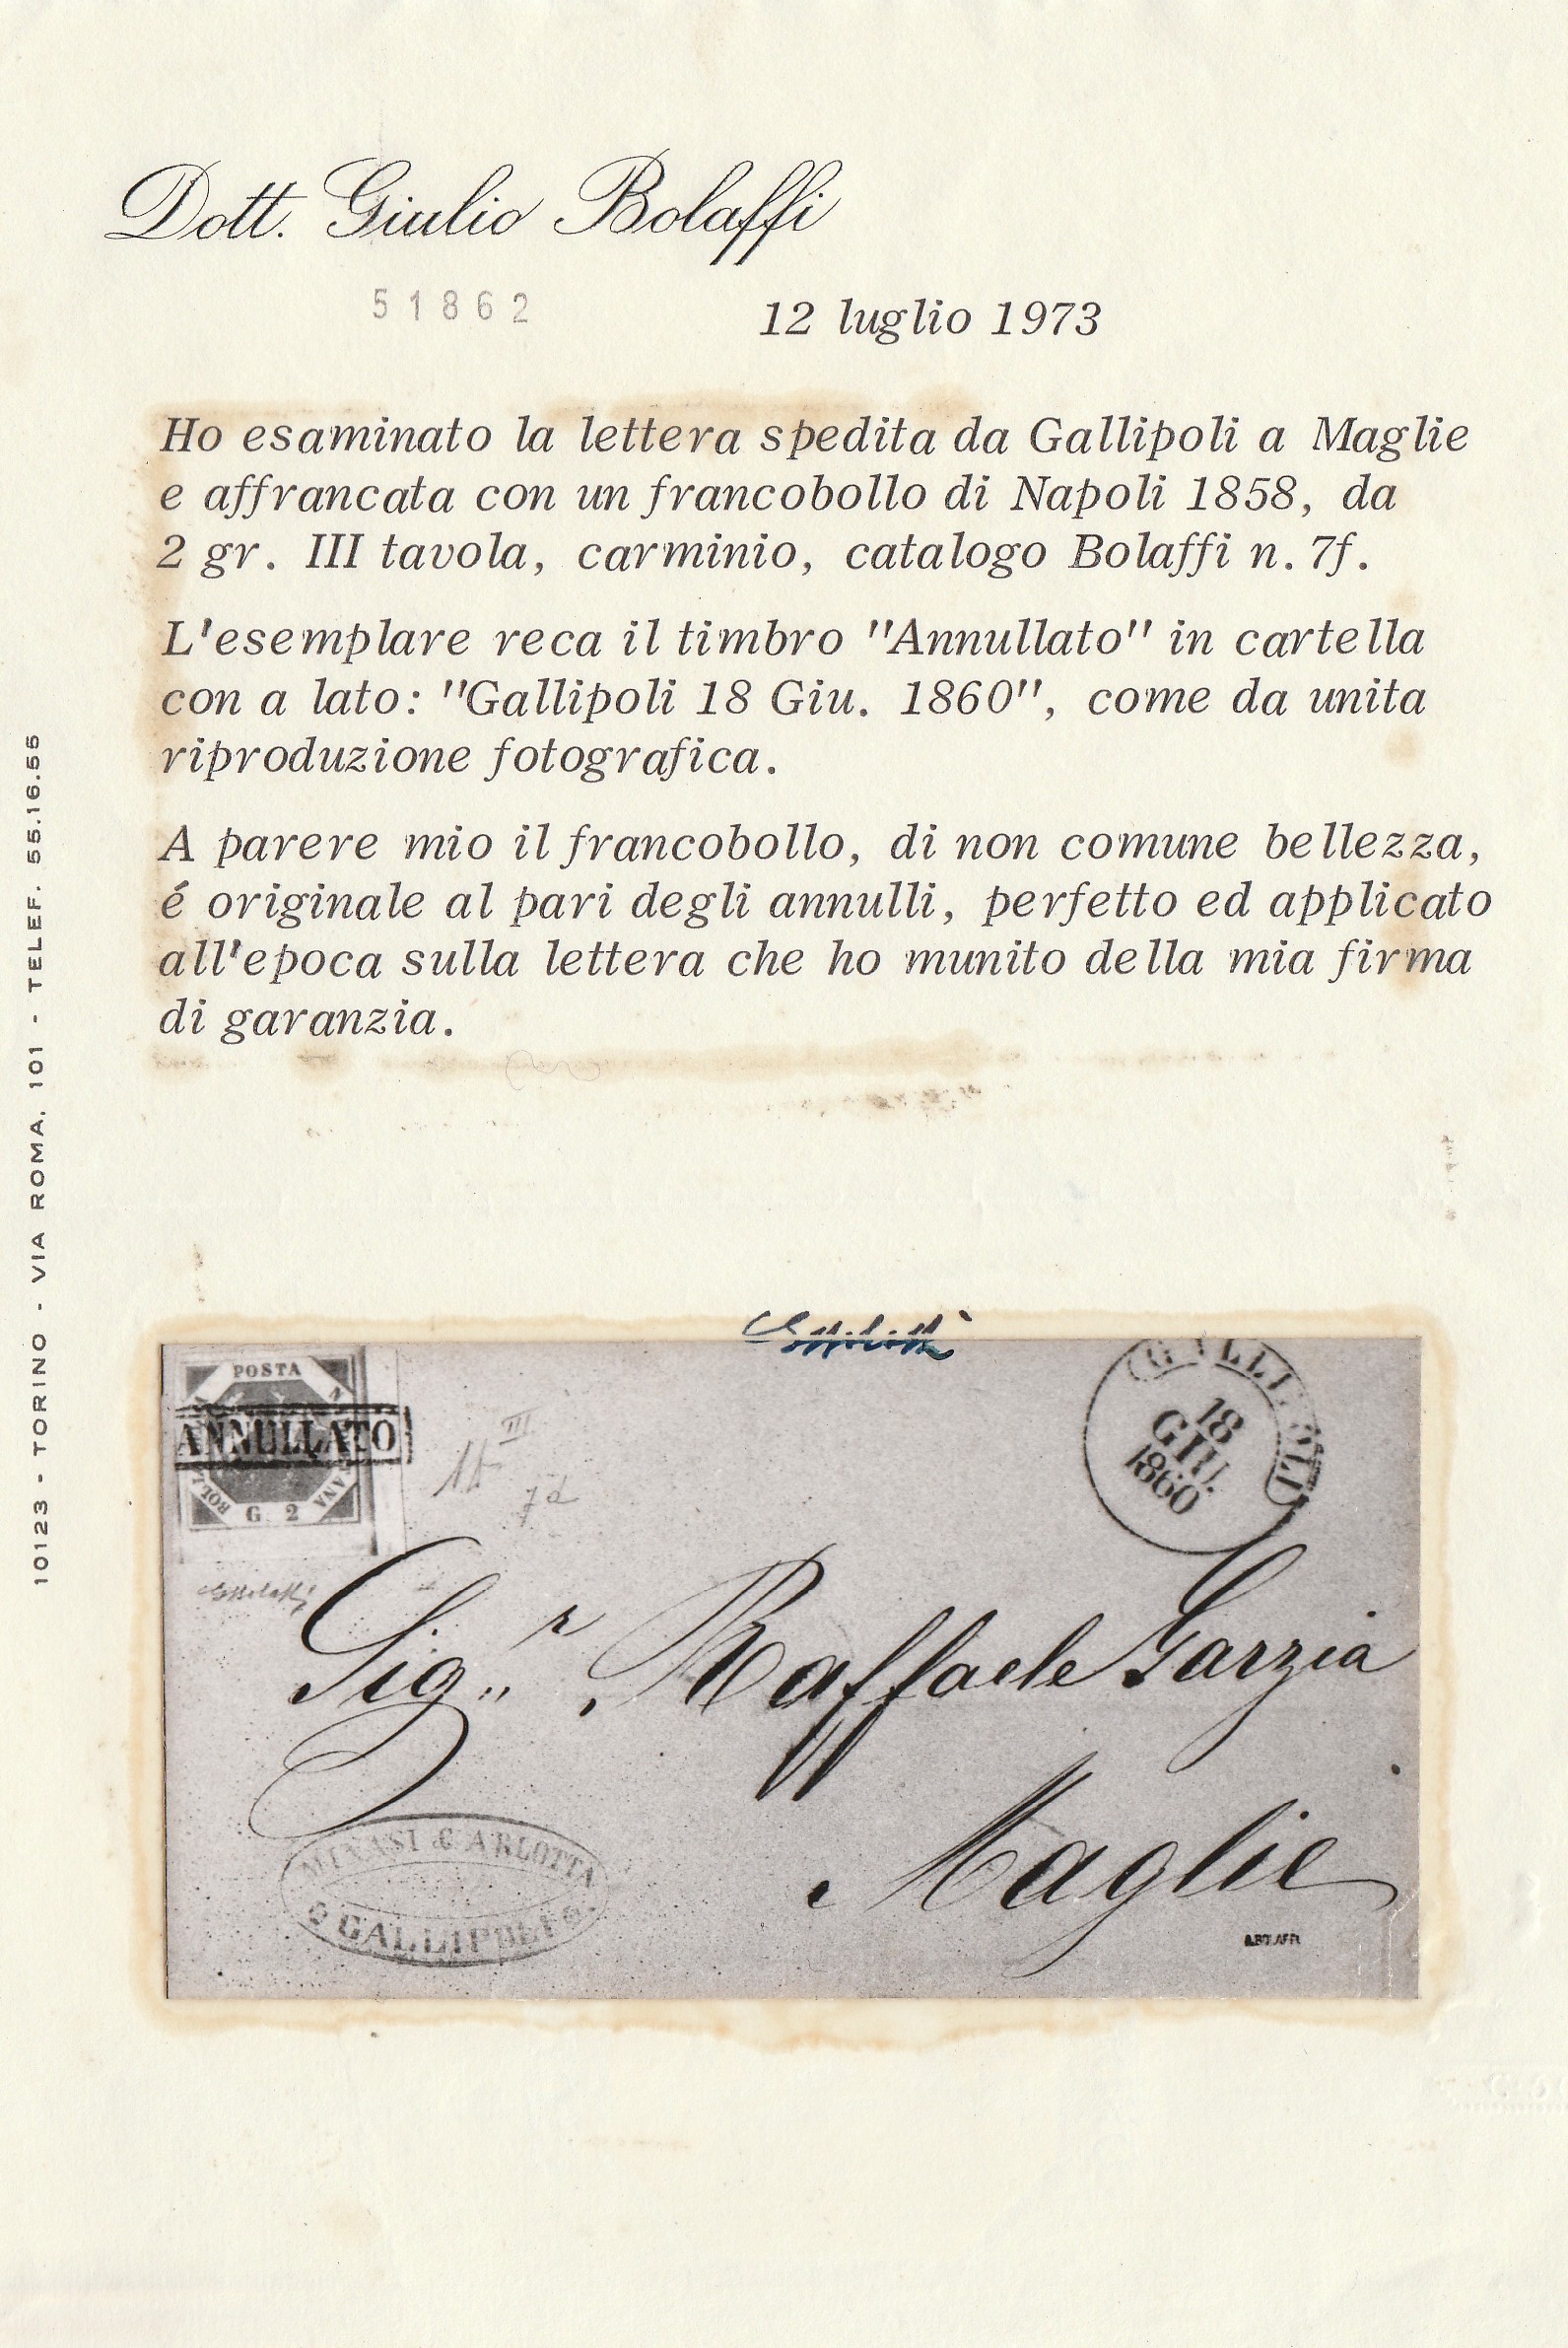 Dott. Giulio Bolaffi
51862
12 luglio 1973
Ho esaminato la lettera spedita da Gallipoli a Maglie
e affrancata con un francobollo di Napoli 1858, da
2 gr. III tavola, carminio, catalogo Bolaffi n. 7f.
L'esemplare reca il timbro "Annullato" in cartella
con a lato: "Gallipoli 18 Giu. 1860", come da unita
riproduzione fotografica.
A parere mio il francobollo, di non comune bellezza,
é originale al pari degli annulli, perfetto ed applicato
all'epoca sulla lettera che ho munito della mia firma
di garanzia.
10123 - TORINO - VIA ROMA, 101 - TELEF. 55.16.55
POSTA
ANNULLATO
BOL
ANA
G. 2
III
7d
GALLIPOLI
18
GIU.
1860
Sig.r Raffaele Garzia
Maglie
MINASI & ARLOTTA
GALLIPOLI